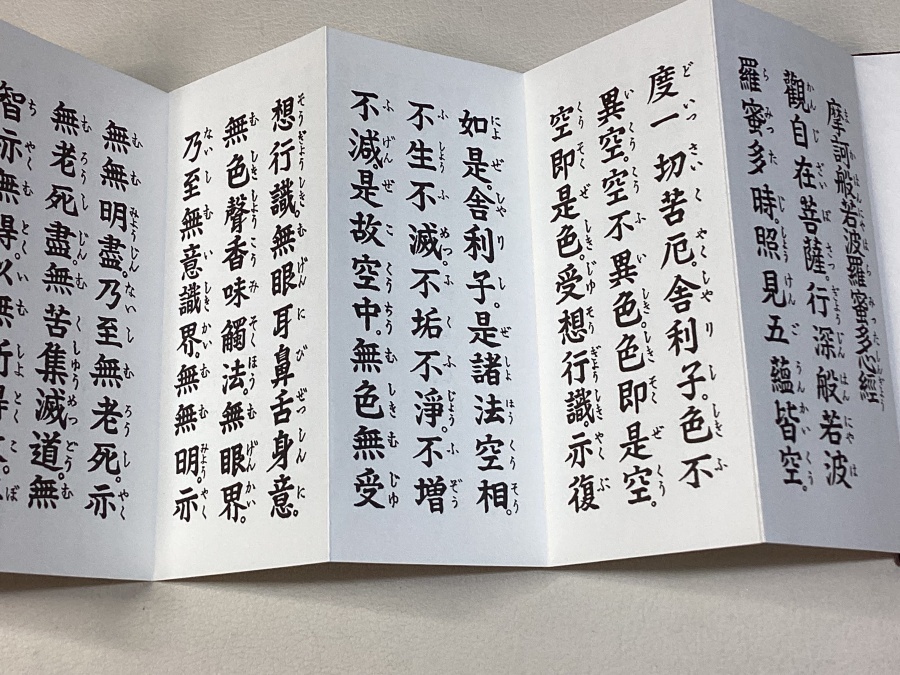 摩訶般若波羅蜜多心經
觀自在菩薩行深般若波
羅蜜多時。照見五蘊皆空。
度一切苦厄。舍利子。色不
異空。空不異色。色即是空。
空即是色。受想行識。亦復
如是。舍利子。是諸法空相。
不生不滅。不垢不淨。不增
不減。是故空中無色無受
想行識。無眼耳鼻舌身意。
無色聲香味觸法。無眼界。
乃至無意識界。無無明。亦
無無明盡。乃至無老死。亦
無老死盡。無苦集滅道。無
智亦無得。以無所得